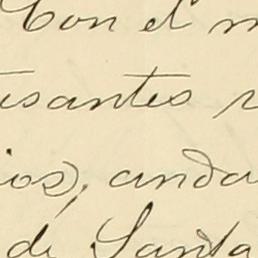 Con el m
isantes r
ios, anda
de Santa